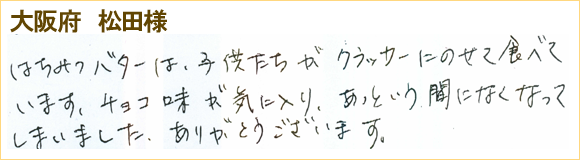 大阪府 松田様
はちみつバターは、子供たちがクラッカーにのせて食べて
います。チョコ味が気に入り、あっという間になくなって
しまいました。ありがとうございます。